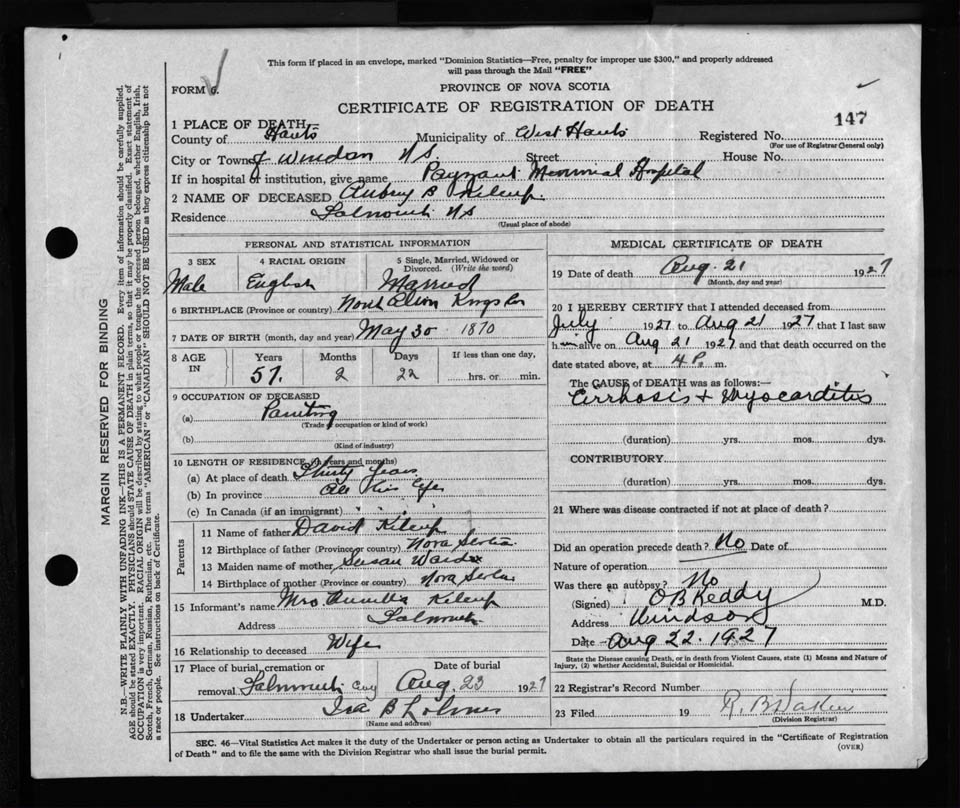 This form if placed in an envelope, marked "Dominion Statistics—Free, penalty for improper use $300," and properly addressed
will pass through the Mail "FREE"
FORM 6.
PROVINCE OF NOVA SCOTIA
CERTIFICATE OF REGISTRATION OF DEATH
147
1 PLACE OF DEATH—
County of Hants Municipality of West Hants Registered No.
(For use of Registrar General only)
City or Town of Windsor N S, Street House No.
If in hospital or institution, give name Payzant Memorial Hospital
2 NAME OF DECEASED Aubrey B Kilcup
Residence Falmouth N S
(Usual place of abode)
PERSONAL AND STATISTICAL INFORMATION
3 SEX 4 RACIAL ORIGIN 5 Single, Married, Widowed or Divorced. (Write the word)
Male English Married
6 BIRTHPLACE (Province or country) North Alton Kings Co
7 DATE OF BIRTH (month, day and year) May 30 1870
8 AGE IN Years Months Days If less than one day,
57. 2 22 hrs. or min.
9 OCCUPATION OF DECEASED
(a) Painting
(Trade occupation or kind of work)
(b)
(Kind of industry)
10 LENGTH OF RESIDENCE (in years and months)
(a) At place of death Thirty Years
(b) In province All His Life
(c) In Canada (if an immigrant)
Parents
11 Name of father David Kilcup
12 Birthplace of father (Province or country) Nova Scotia
13 Maiden name of mother Susan
14 Birthplace of mother (Province or country) Nova Scotia
15 Informant's name Mrs Kilcup
Address Falmouth
16 Relationship to deceased Wife
17 Place of burial, cremation or Date of burial
removal Falmouth Aug. 23 1927
18 Undertaker Ira B Lohnes
(Name and address)
MEDICAL CERTIFICATE OF DEATH
19 Date of death Aug. 21 1927
(Month, day and year)
20 I HEREBY CERTIFY that I attended deceased from
July 1927 to Aug 21 1927 that I last saw
him alive on Aug 21 1927 and that death occurred on the
date stated above, at 4 P. m.
The CAUSE of DEATH was as follows:—
Cirrhosis + Myocarditis
(duration) yrs. mos. dys.
CONTRIBUTORY
(duration) yrs. mos. dys.
21 Where was disease contracted if not at place of death?
Did an operation precede death? No Date of
Nature of operation
Was there an autopsy? No
(Signed) O B Keddy M.D.
Address Windsor
Date Aug 22. 1927
State the Disease causing Death, or in death from Violent Causes, state (1) Means and Nature of
Injury, (2) whether Accidental, Suicidal or Homicidal.
22 Registrar's Record Number
23 Filed 19 R. B Dakin
(Division Registrar)
SEC. 46—Vital Statistics Act makes it the duty of the Undertaker or person acting as Undertaker to obtain all the particulars required in the "Certificate of Registration
of Death" and to file the same with the Division Registrar who shall issue the burial permit.
(OVER)
MARGIN RESERVED FOR BINDING
N.B.—WRITE PLAINLY WITH UNFADING INK—THIS IS A PERMANENT RECORD. Every item of information should be carefully supplied.
AGE should be stated EXACTLY. PHYSICIANS should STATE CAUSE OF DEATH in plain terms, so that it may be properly classified. Exact statement of
OCCUPATION is very important. RACIAL ORIGIN will be described by stating to what people or tongue the deceased person belonged, whether English, Irish,
Scotch, French, German, Russian, Ruthenian, etc. The terms "AMERICAN" or "CANADIAN" SHOULD NOT BE USED as they express citizenship but not
a race or people. See instructions on back of Certificate.